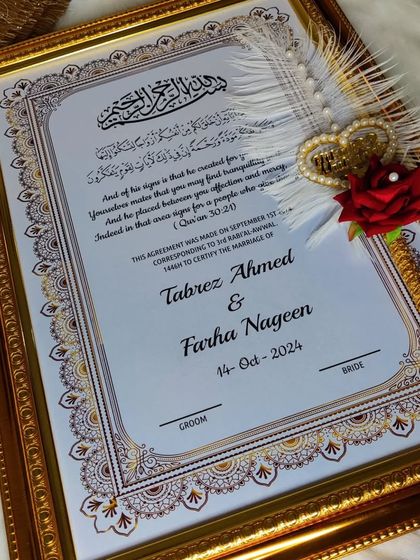 بسم الله الرحمن الرحيم
وَمِنْ آيَاتِهِ أَنْ خَلَقَ لَكُم مِّنْ أَنفُسِكُمْ أَزْوَاجًا لِّتَسْكُنُوا إِلَيْهَا
وَجَعَلَ بَيْنَكُم مَّوَدَّةً وَرَحْمَةً إِنَّ فِي ذَٰلِكَ لَآيَاتٍ لِّقَوْمٍ يَتَفَكَّرُونَ
And of his signs is that he created for
Yourselves mates that you may find
And he placed between you affection and mercy,
Indeed in that area signs for a people who
( Qur'an 30:21 )
THIS AGREEMENT WAS MADE ON SEPTEMBER 1ST
CORRESPONDING TO 3rd RABI'AL-AWWAL,
1446H TO CERTIFY THE MARRIAGE OF
Tabrez Ahmed
&
Farha Nageen
14- Oct - 2024
GROOM
BRIDE